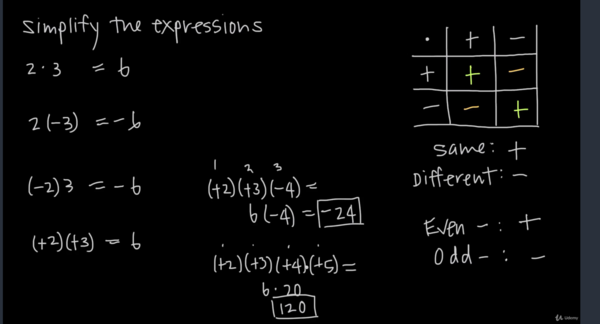 Simplify the expressions
2 · 3 = 6
2 (-3) = -6
(-2) 3 = -6
(+2)(+3) = 6
1 2 3
(+2)(+3)(-4) =
6 (-4) = -24
(+2)(+3)(+4)·(+5) =
6 · 20
120
· + -
+ + -
- - +
Same: +
Different: -
Even - : +
Odd - : -
Udemy